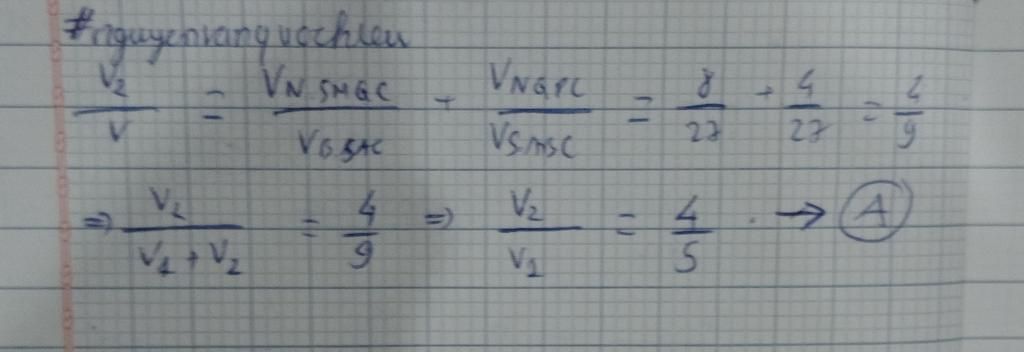 #nguyenrangvochleu
V2/V = VN SMQC/VBSAC + VNQPC/VSMSC = 8/27 + 4/27 = 4/9
=> V2/(V1 + V2) = 4/9 => V2/V1 = 4/5 . → A